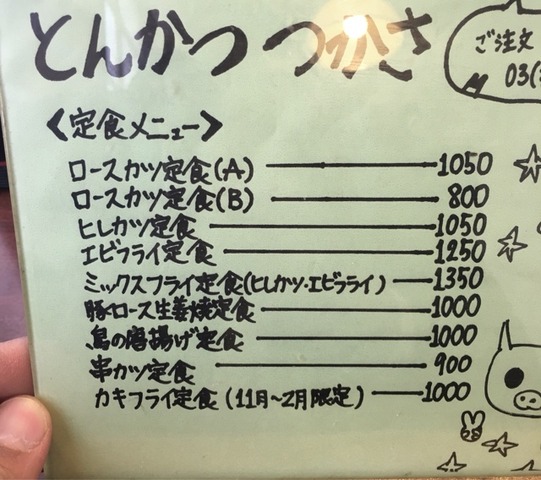 とんかつ つかさ
ご注文
03(
<定食メニュー>
ロースカツ定食(A) 1050
ロースカツ定食(B) 800
ヒレカツ定食 1050
エビフライ定食 1250
ミックスフライ定食(ヒレカツ・エビフライ) 1350
豚ロース生姜焼定食 1000
鳥の唐揚げ定食 1000
串カツ定食 900
カキフライ定食(11月~2月限定) 1000